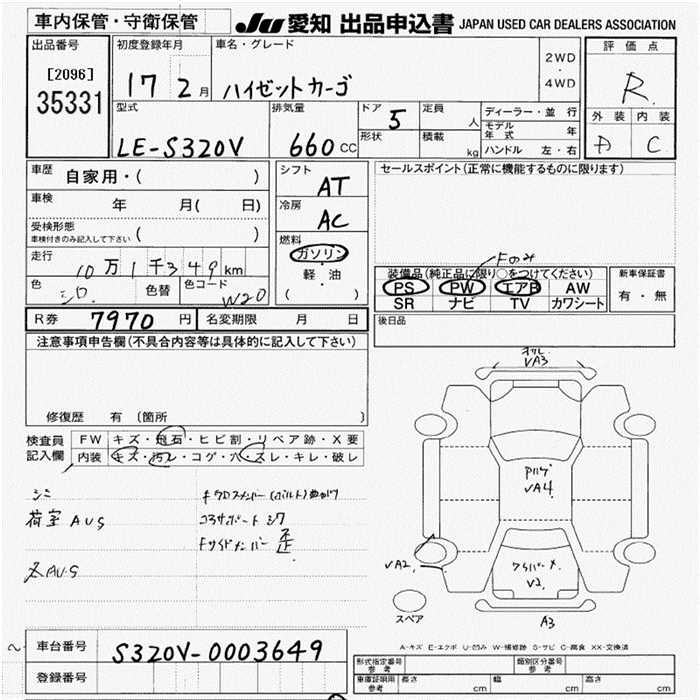 車内保管・守衛保管
JU 愛知 出品申込書 JAPAN USED CAR DEALERS ASSOCIATION
出品番号
[2096]
35331
初度登録年月
17 2 月
車名・グレード
ハイゼットカーゴ
2WD
・
4WD
評価点
R
外装 内装
A C
型式
LE-S320V
排気量
660 CC
ドア 5
形状
定員 人
積載 kg
ディーラー・並行
モデル年式 年
ハンドル 左・右
車歴 自家用・( )
車検 年 月( 日)
受検形態
車検付きのみ記入して下さい ( )
走行
10万1千349km
色 シロ 色替 色コード W20
シフト AT
冷房 AC
燃料
ガソリン
軽・油
( )
セールスポイント(正常に機能するものに限ります)
Fのみ
装備品(純正品に限り○をつけてください)
PS PW エアB AW
SR ナビ TV カワシート
新車保証書
有・無
R券 7970 円 名変期限 月 日
後日品
注意事項申告欄(不具合内容等は具体的に記入して下さい)
修復歴 有 〔箇所 〕
検査員記入欄
FW キズ・飛石・ヒビ割・リペア跡・X要
内装 キズ・汚レ・コゲ・穴・スレ・キレ・破レ
シミ
荷室 AUS
AUS
コアサポート
Fサイドメンバー 歪
VA3
VA4
VA2
V2
A3
スペア
A-キズ E-エクボ U-凹み W-補修跡 S-サビ C-腐食 XX-交換済
車台番号 S320V-0003649
登録番号
形式指定番号 参考
類別区分番号 参考
車庫証明用 参考 長さ cm 幅 cm 高さ cm